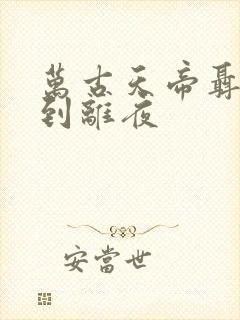 萬古天帝聶
到離夜
安當世